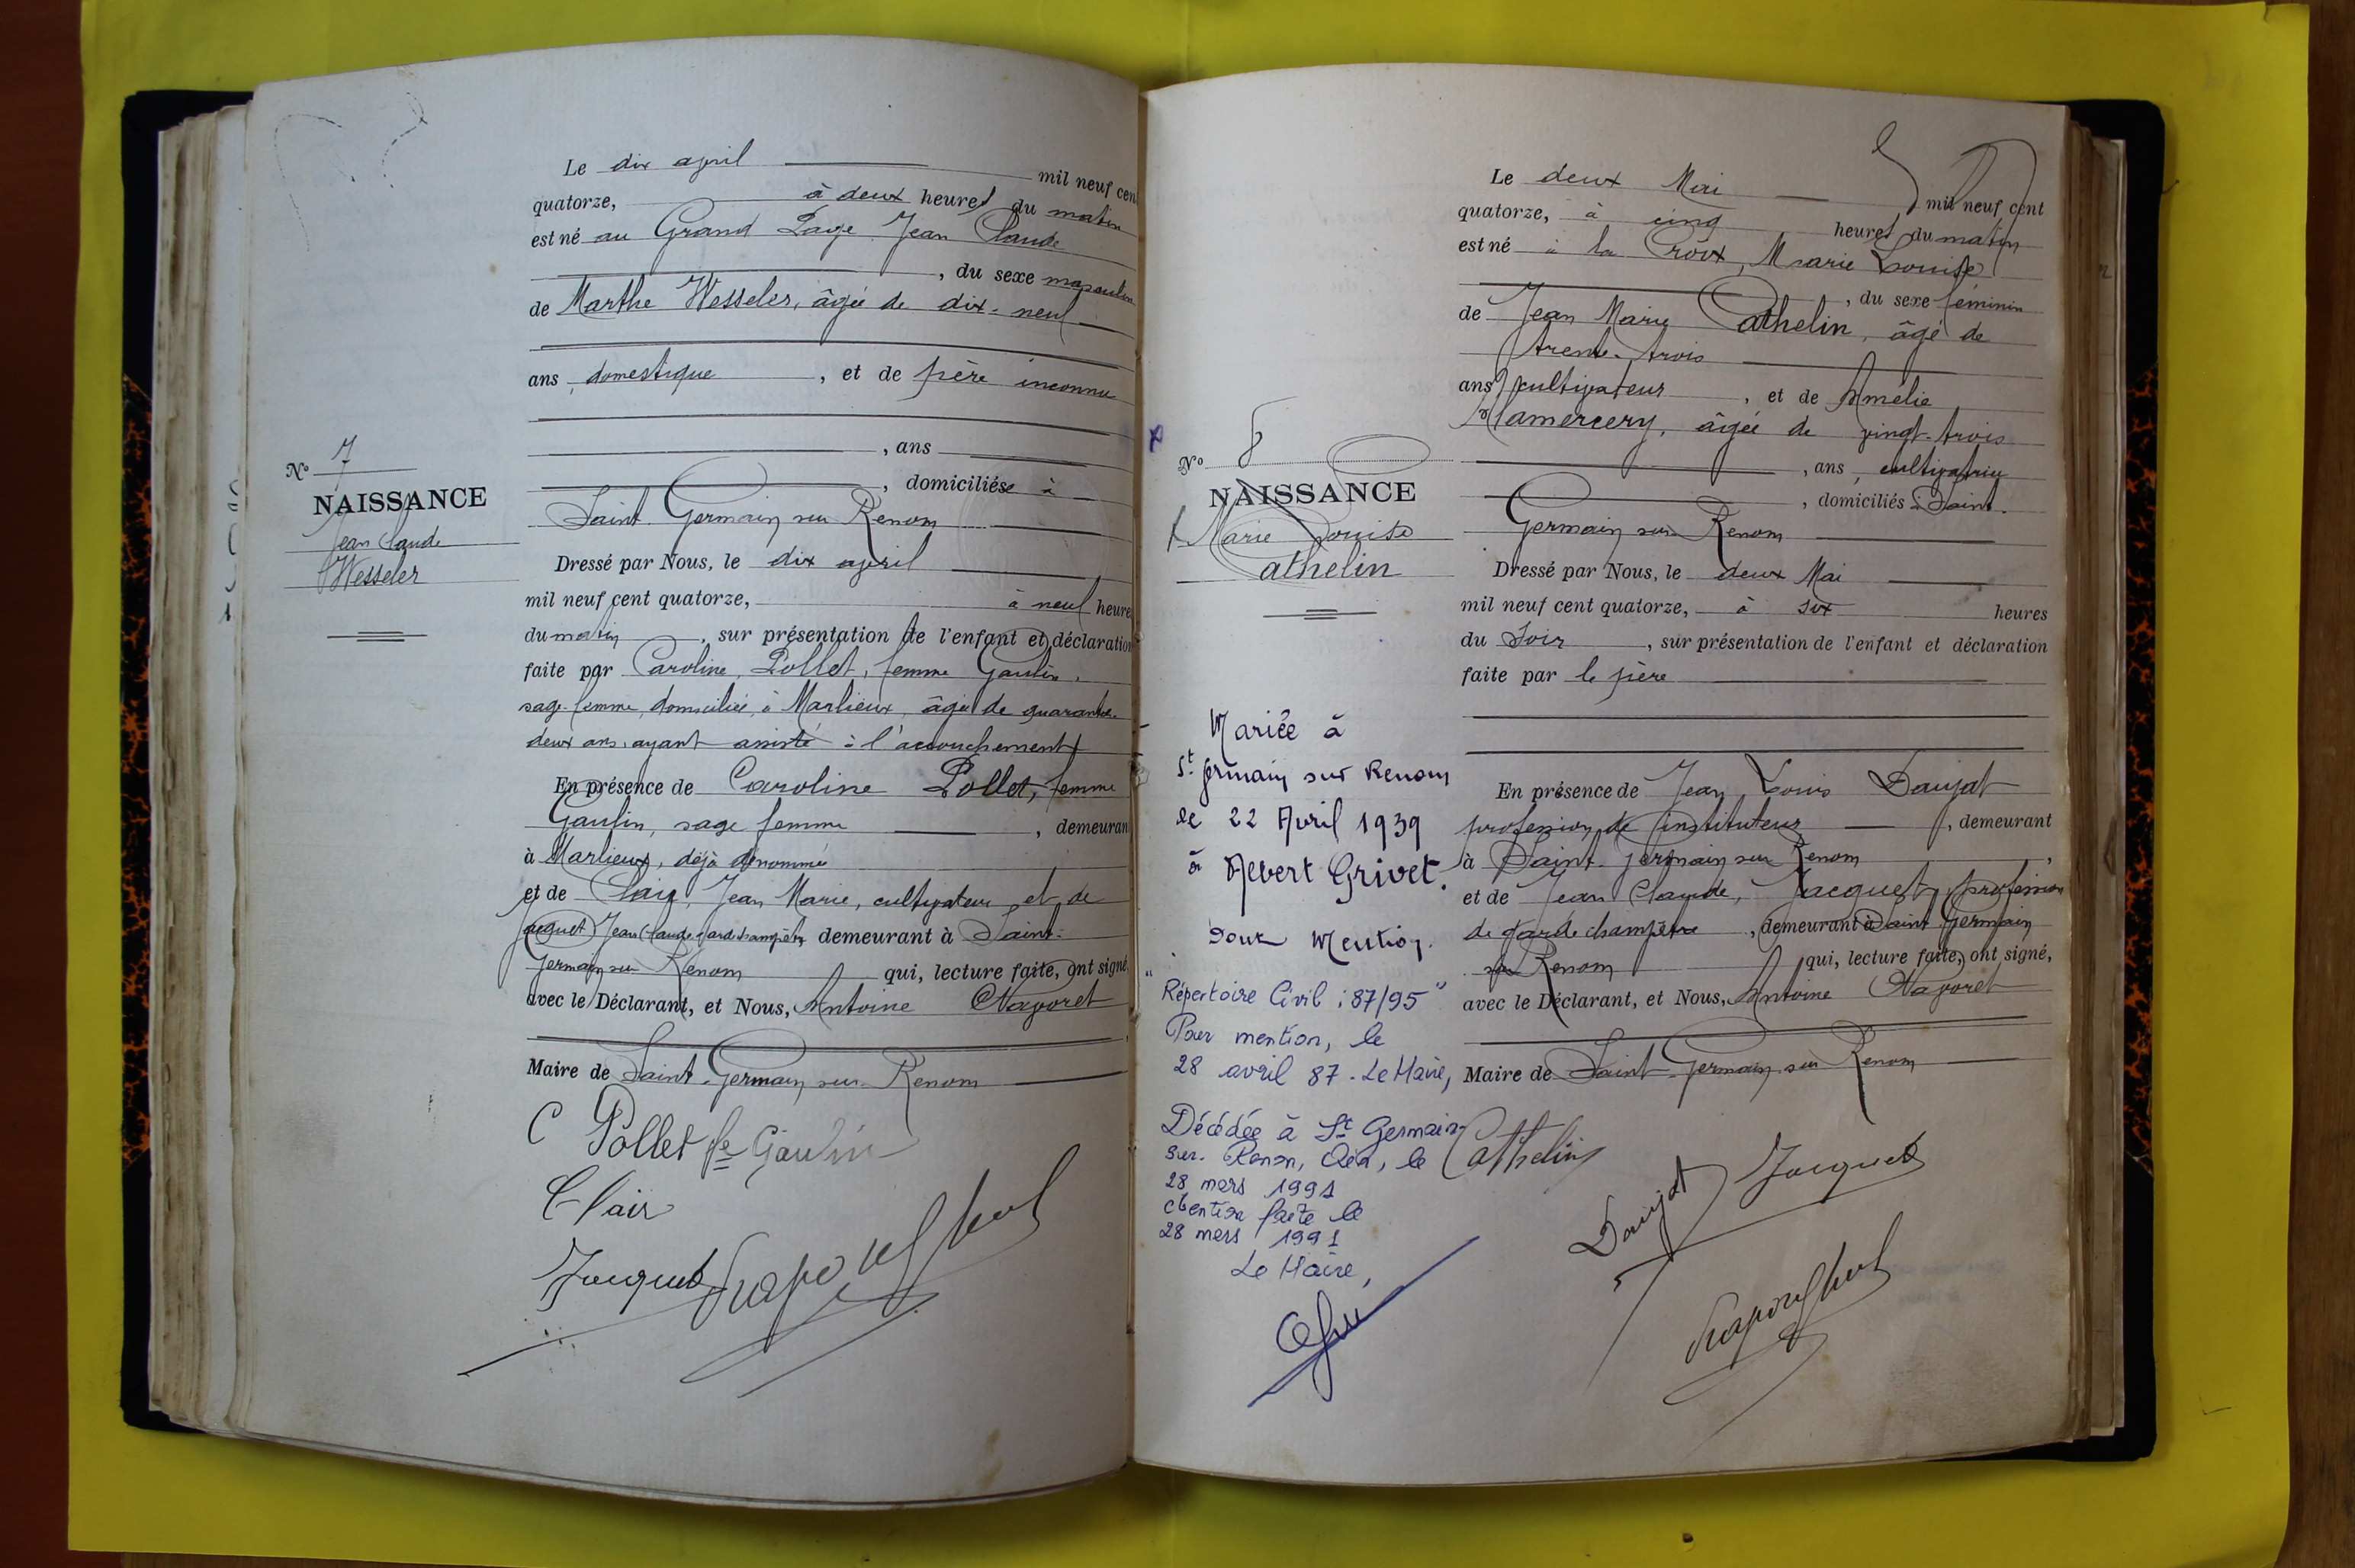 Le dix avril mil neuf cent
quatorze, à deux heures du matin
est né au Grand Page Jean Claude
, du sexe masculin
de Marthe Wesseler, âgée de dix-neuf
ans, domestique, et de père inconnu
, ans
, domiciliée à
Saint Germain sur Renom
Nº 7
NAISSANCE
Jean Claude
Wesseler
Dressé par Nous, le dix avril
mil neuf cent quatorze, à neuf heures
du matin, sur présentation de l'enfant et déclaration
faite par Caroline Pollet, femme Gaulin,
sage-femme, domiciliée à Marlieux, âgée de quarante-
deux ans, ayant assisté à l'accouchement
En présence de Caroline Pollet, femme
Gaulin, sage femme, demeurant
à Marlieux, déjà dénommée
et de Clair, Jean Marie, cultivateur et de
Jacquet Jean Claude garde champêtre demeurant à Saint-
Germain sur Renom qui, lecture faite, ont signé
avec le Déclarant, et Nous, Antoine
Maire de Saint-Germain sur Renom
C Pollet fe Gaulin
Clair
Jacquet
Le deux Mai mil neuf cent
quatorze, à cinq heures du matin
est né à la Croix, Marie Louise
, du sexe féminin
de Jean Marie Cathelin, âgé de
trente-trois
ans, cultivateur, et de Amélie
Mamercery, âgée de vingt-trois
, ans, cultivatrice
, domiciliés à Saint-
Germain sur Renom
Nº 8
NAISSANCE
Marie Louise
Cathelin
Dressé par Nous, le deux Mai
mil neuf cent quatorze, à six heures
du Soir, sur présentation de l'enfant et déclaration
faite par le père
En présence de Jean Louis Daujat
profession de instituteur, demeurant
à Saint-Germain sur Renom,
et de Jean Claude, Jacquet, profession
de garde champêtre, demeurant à Saint Germain
sur Renom qui, lecture faite, ont signé,
avec le Déclarant, et Nous, Antoine
Maire de Saint-Germain sur Renom
Cathelin
Daujat
Jacquet
Mariée à
St Germain sur Renom
le 22 Avril 1939
à Albert Grivet.
Pour Mention.
"Répertoire Civil : 87/95"
Pour mention, le
28 avril 87. Le Maire,
Décédée à St Germain-
sur-Renon, Ain, le
28 mars 1991
Mention faite le
28 mars 1991
Le Maire,